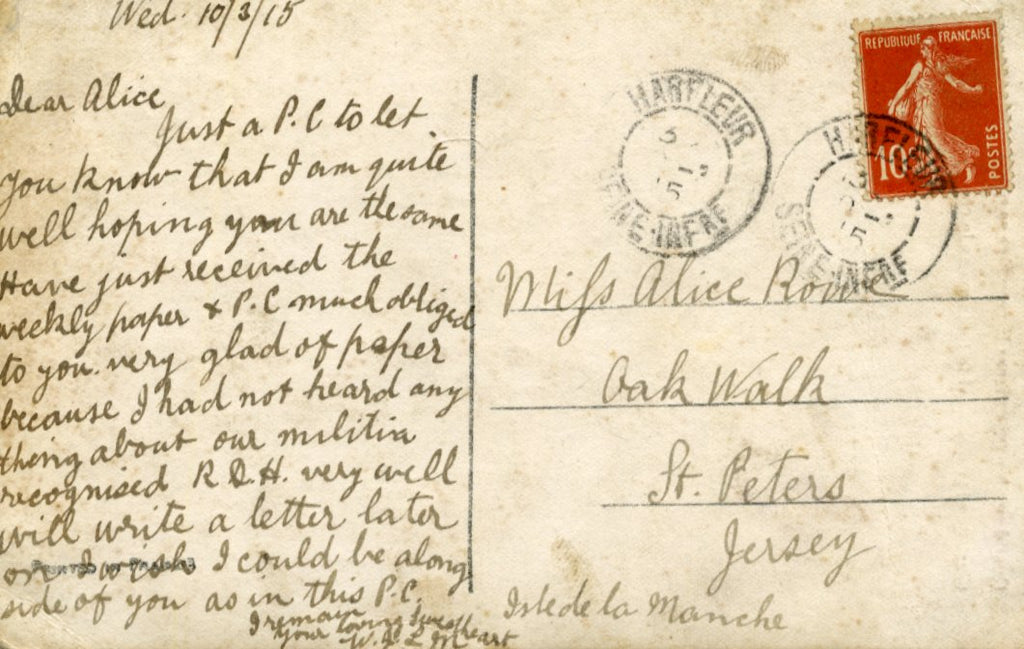 Wed. 10/3/15
Dear Alice
Just a P.C to let
you know that I am quite
well hoping you are the same
Have just received the
weekly paper & P.C much obliged
to you. very glad of paper
because I had not heard any
thing about our militia
recognised R.D.H. very well
will write a letter later
on I wish I could be along
side of you as in this P.C.
I remain
your loving Sweetheart
HARFLEUR
SEINE-INFRE
REPUBLIQUE FRANÇAISE
10
POSTES
HARFLEUR
SEINE-INFRE
Miss Alice
Oak Walk
St. Peters
Jersey
Isle de la Manche